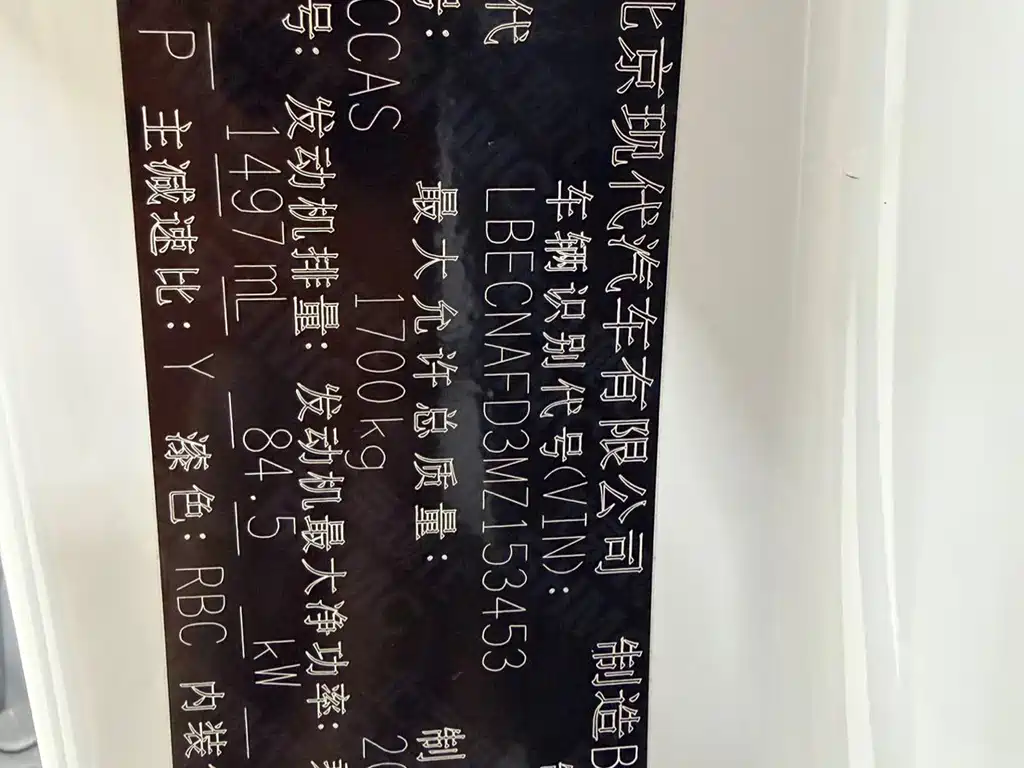 北京现代汽车有限公司 制造B
车辆识别代号(VIN):
代 LBECNAFD3MZ153453
号: 最大允许总质量: 制
CCAS 1700kg 20
号: 发动机排量: 发动机最大净功率:
1497 mL 84.5 kW
P 主减速比: Y 漆色: RBC 内装